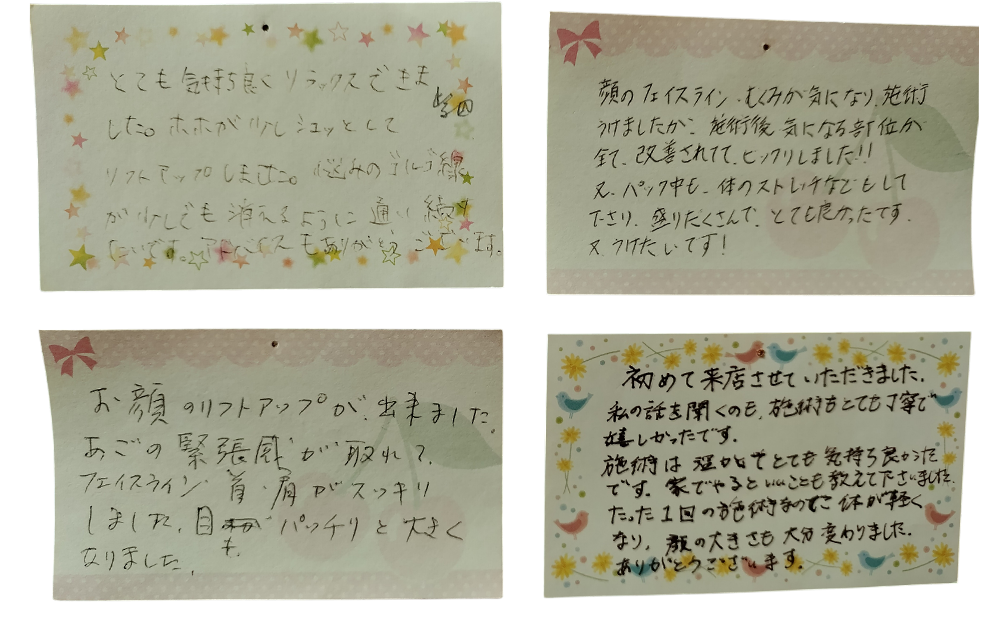 とても気持ち良くリラックスできま
した。ホホが少しシュッとして
リフトアップしました。悩みのゴルゴ線
が少しでも消えるように通い続け
たいです。アドバイスもありがとうございます。
顔のフェイスライン・むくみが気になり、施術
うけましたが、施術後、気になる部位が
全て、改善されてて、ビックリしました!!
又、パック中も、体のストレッチなどもして
下さり、盛りだくさんで、とても良かったです。
又、うけたいです!
お顔のリフトアップが、出来ました。
あごの緊張感が取れて、
フェイスライン・首・肩がスッキリ
しました。目も パッチリと大きく
なりました。
初めて来店させていただきました。
私の話を聞くのも、施術もとても丁寧で
嬉しかったです。
施術は温かくてとても気持ち良かった
です。家でやるといいことも教えて下さいました。
たった1回の施術なのに体が軽く
なり、顔の大きさも大分変わりました。
ありがとうございます。